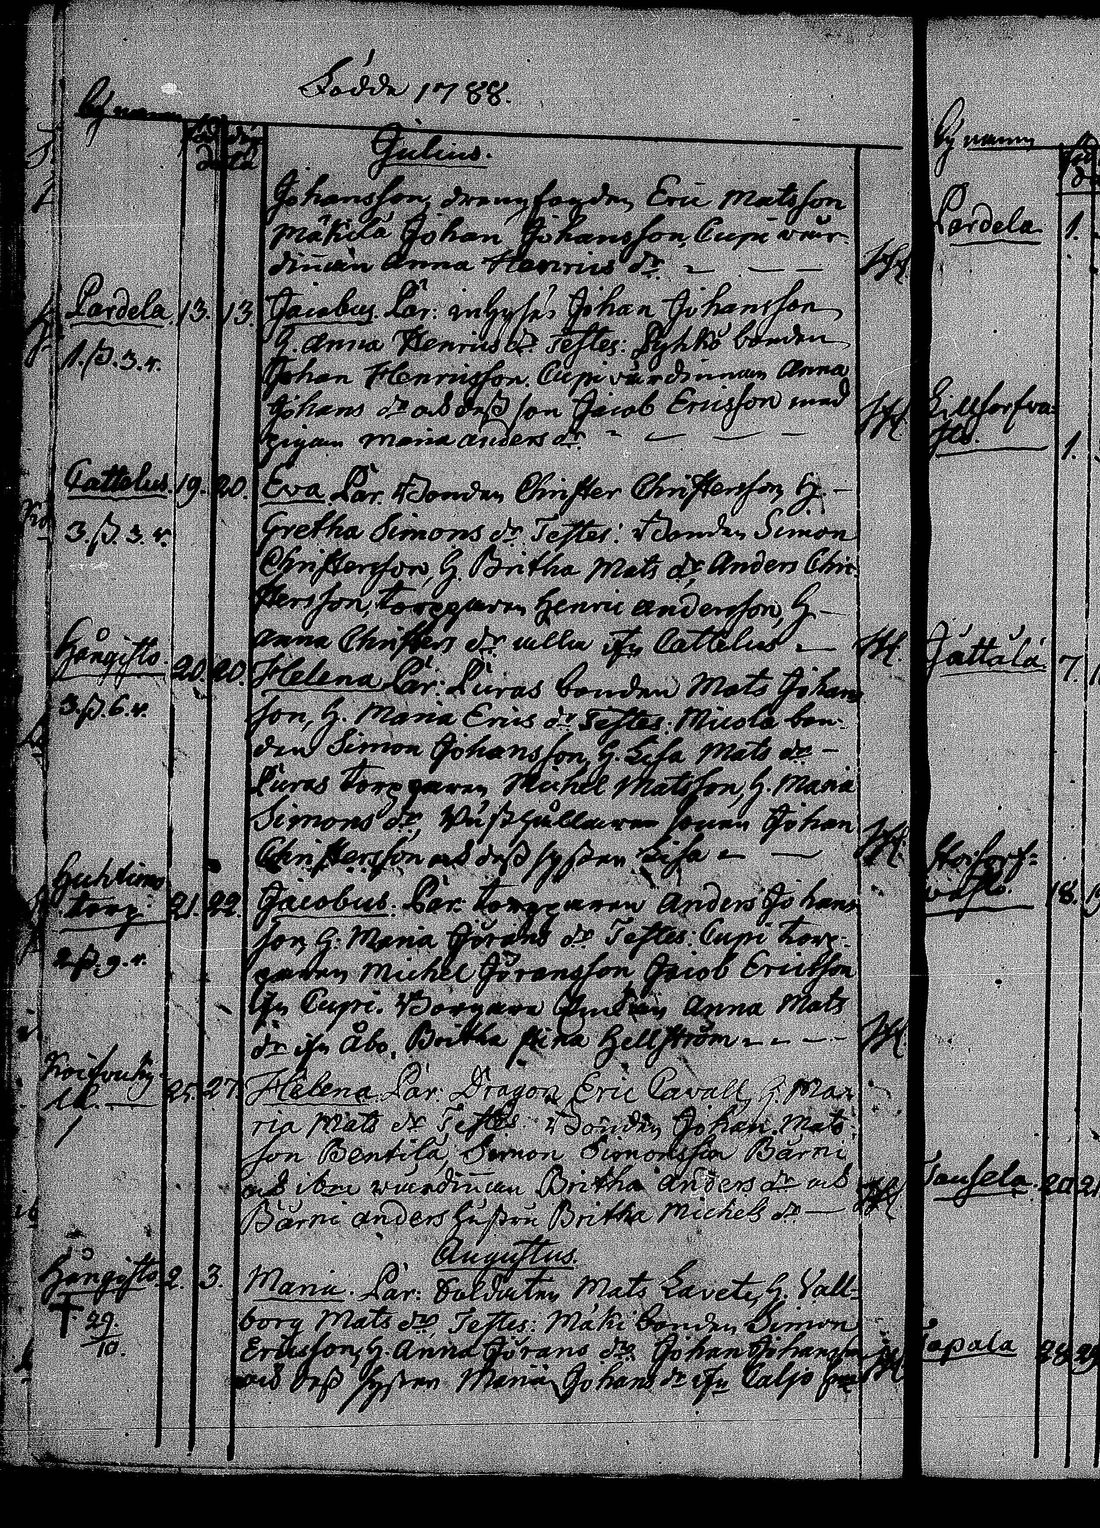 Födde 1788.
by namn
Julius.
Johansson, drengfogden Eric Matsson
Mäkilä Johan Johansson, Cupi wär-
dinnan Anna Henrics dr
Pardela 13. 13. Jacobus. Pär: inhyses Johan Johansson
H. Anna Henrics dr Testes: bonden
1. ß. 3. r. Johan Henricsson. Cupi värdinnan Anna
Johans dr och dess son Jacob Ericsson med
pigan Maria Anders dr
Cattelus 19. 20. Eva Pär. Bonden Christer Christersson H.
3. ß. 3. r. Gretha Simons dr Testes: Bonden Simon
Christersson, H. Britha Mats dr Anders Chri-
stersson, torpparen Henric Andersson, H
Anna Christers dr alla ifn Cattelus
Hångisto 20. 20. Helena Pär: Puras bonden Mats Johans
3. ß. 6. r. son, H. Maria Erics dr Testes: Micola bon-
den Simon Johansson, H. Lisa Mats dr
Puras torpparen Michel Matsson, H. Maria
Simons dr, sonen Johan
Christersson och dess systen Lisa
torp 21. 22. Jacobus. Pär: torpparen Anders Johans
son, H. Maria Jörans dr Testes: Cupi torp-
2 ß. 9. r. paren Michel Jöransson Jacob Ericsson
ifn Cupi. Borgare Anna Mats
dr ifn Åbo, Britha Stina Hellström
25. 27. Helena Pär: Dragon Eric Cavall, H. Ma-
ria Mats dr Testes: Bonden Johan Mats-
son Bentilä, Simon Simonsson Bärni
och wärdinnan Britha Anders dr och
Bärni Anders hustru Britha Michels dr
Augustus.
Hångisto 2. 3. Maria. Pär: Soldaten Mats Lavete, H. Vall-
† 29/10. borg Mats dr, Testes: Mäki bonden Simon
Ericsson, H. Anna Jörans dr Johan Johansson
och dess systen Maria Johans dr ifn Caljo
by namn
Pardela 1.
1.
Jättälä 7.
18.
Tausela 20
Tapala 28